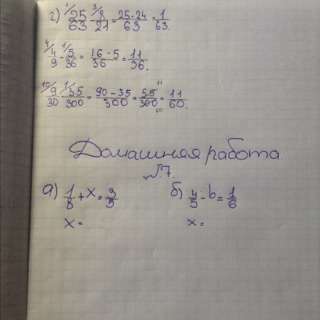 г) 25/63 - 8/21 = 25-24/63 = 1/63.
4/9 - 5/36 = 16-5/36 = 11/36.
9/30 - 35/300 = 90-35/300 = 55/300 = 11/60.
Домашняя работа
№7.
а) 1/8 + x = 3/5 б) 4/5 - b = 1/6
x = x =